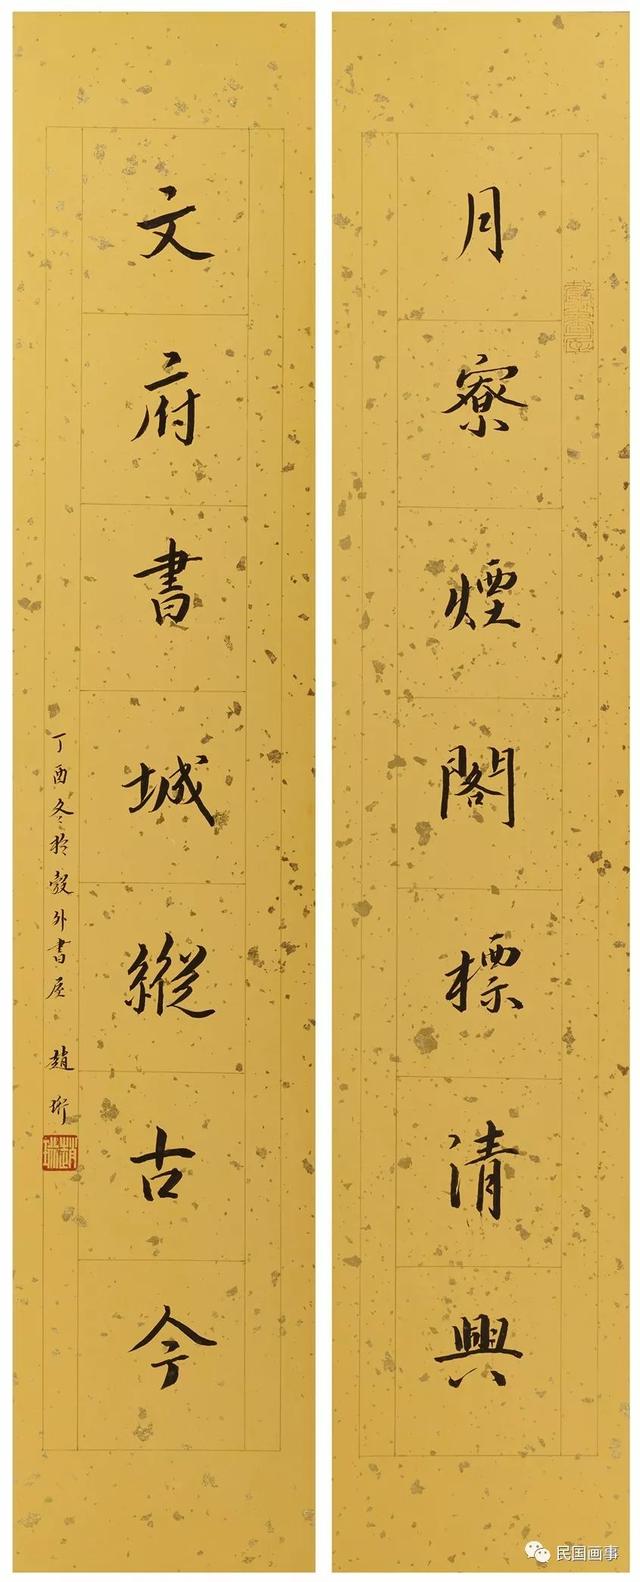 月寮煙閣標清興
文府書城縱古今
丁酉冬於彀外書屋 趙珩
趙珩
民国画事